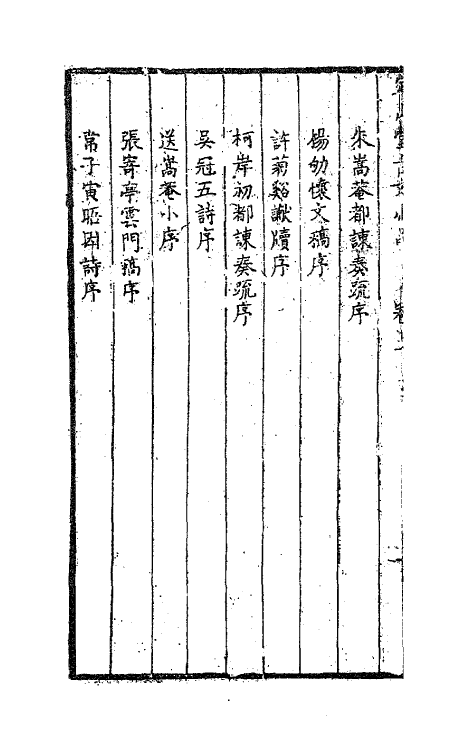 朱嵩菴都諫奏疏序
楊幼懷文稿序
許菊谿讞牘序
柯岸初都諫奏疏序
吳冠五詩序
送嵩菴小序
張寄亭雲門稿序
常子寅聽囪詩序